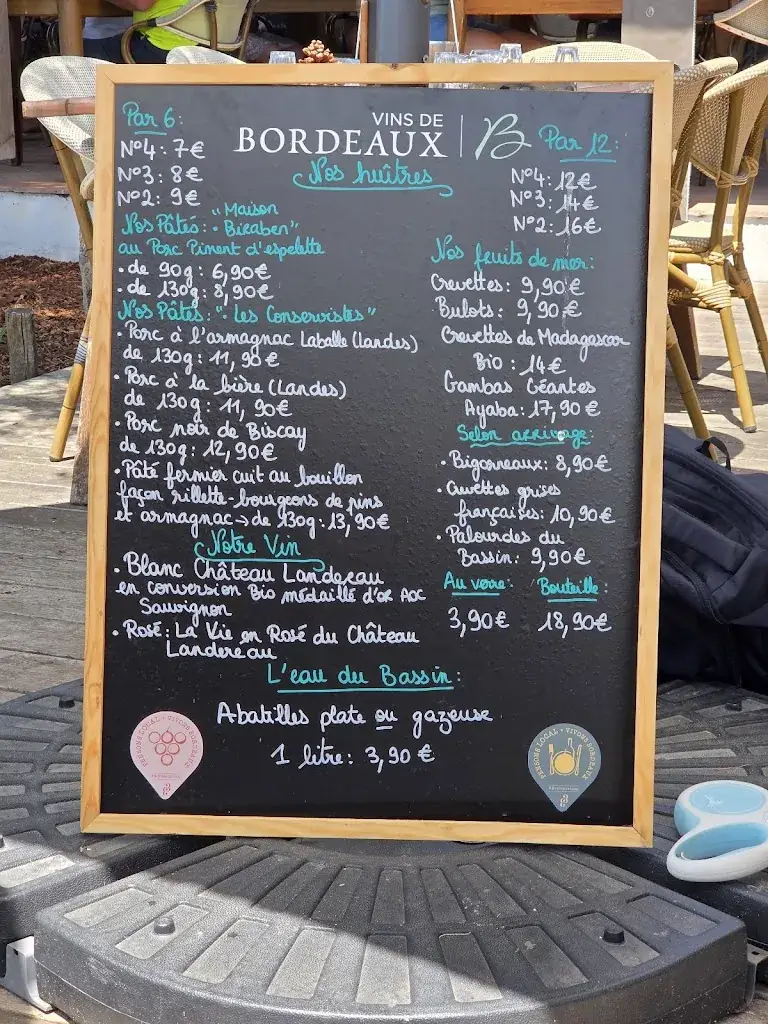 VINS DE
BORDEAUX
B
Nos huîtres
Par 6:
N°4: 7€
N°3: 8€
N°2: 9€
Par 12:
N°4: 12€
N°3: 14€
N°2: 16€
Nos Pâtés: "Maison
Biraben"
au Porc Piment d'espelette
• de 90g: 6,90€
• de 130g: 8,90€
Nos Pâtes: "Les Conservistes"
• Porc à l'armagnac Laballe (Landes)
de 130g: 11,90€
• Porc à la bière (Landes)
de 130g: 11,90€
• Porc noir de Biscay
de 130g: 12,90€
• Pâté fermier cuit au bouillon
façon rillette-bourgeons de pins
et armagnac → de 130g: 13,90€
Nos fruits de mer:
Crevettes: 9,90€
Bulots: 9,90€
Crevettes de Madagascar
Bio: 14€
Gambas Géantes
Ayaba: 17,90€
Selon arrivage:
• Bigorneaux: 8,90€
• Crevettes grises
françaises: 10,90€
• Palourdes du
Bassin: 9,90€
Notre Vin
• Blanc Château Landereau
en conversion Bio médaillé d'or AOC
Sauvignon
• Rosé: La Vie en Rosé du Château
Landereau
Au verre: Bouteille:
3,90€ 18,90€
L'eau du Bassin:
Abatilles plate ou gazeuse
1 litre: 3,90€
PENSONS LOCAL • VIVONS BORDEAUX
PENSONS LOCAL • VIVONS BORDEAUX